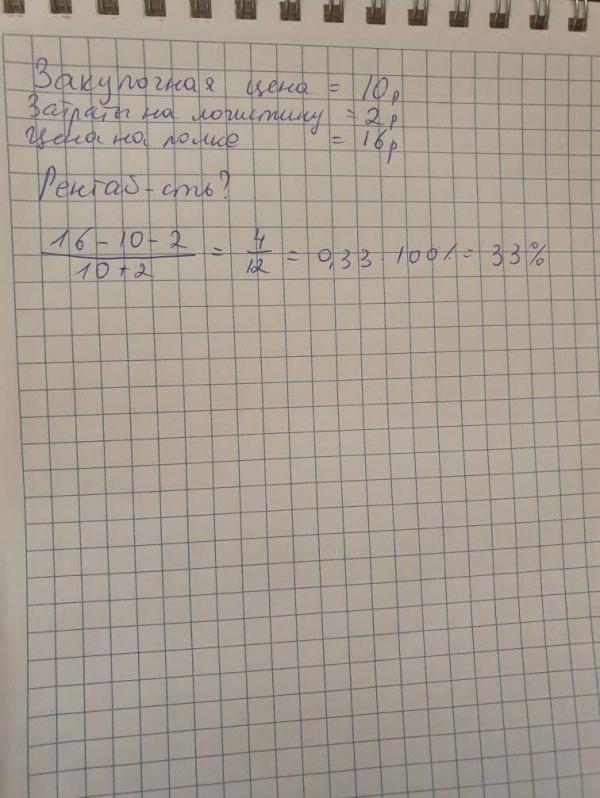 Закупочная цена = 10р
Затраты на логистику = 2р
Цена на полке = 16р
Рентаб-сть?
16-10-2/10+2 = 4/12 = 0,33 · 100% = 33%